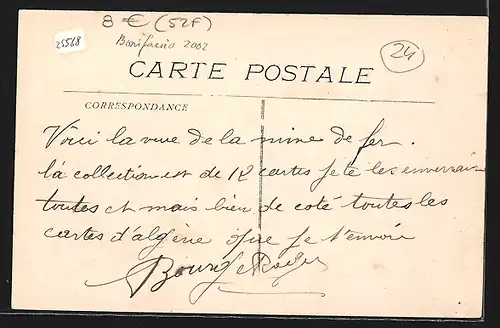 8 € (52F)
25568
Bonifacio 2002
24
CARTE POSTALE
CORRESPONDANCE
Voici la vue de la mine de fer.
la collection est de 12 cartes je te les enverrai
toutes et mais bien de coté toutes les
cartes d'algérie que je t'envoie